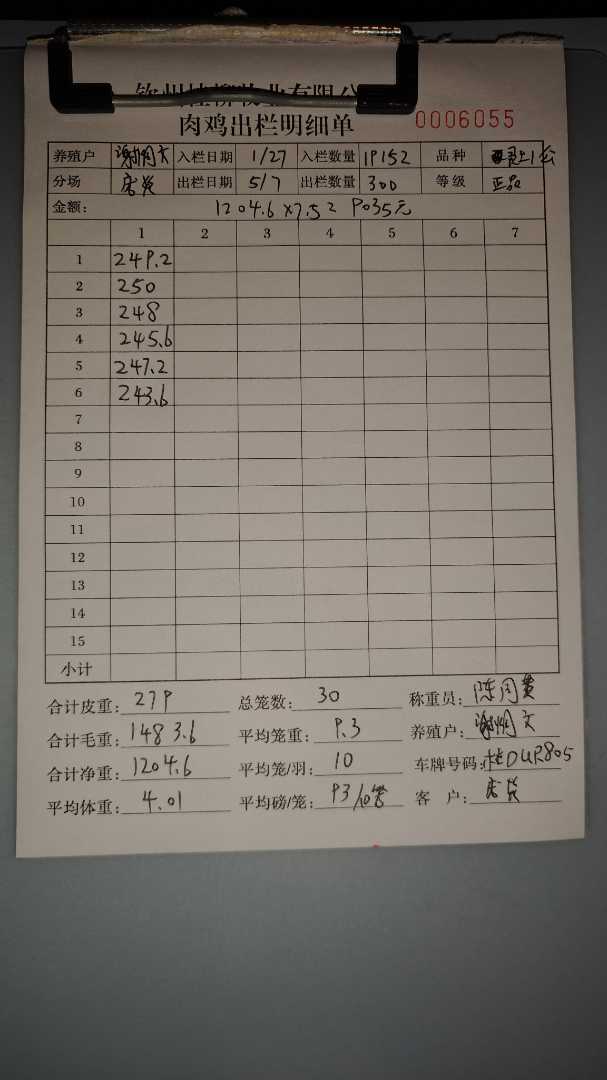 钦州桂柳牧业有限公
肉鸡出栏明细单 0006055
养殖户 谢炳文 入栏日期 1/27 入栏数量 19152 品种 灵上1公
分场 出栏日期 5/7 出栏数量 300 等级 正品
金额: 1204.6 ×7.52 9035元
1 2 3 4 5 6 7
1 249.2
2 250
3 248
4 245.6
5 247.2
6 243.6
7
8
9
10
11
12
13
14
15
小计
合计皮重: 279 总笼数: 30 称重员: 陈同贵
合计毛重: 1483.6 平均笼重: 9.3 养殖户: 谢炳文
合计净重: 1204.6 平均笼/羽: 10 车牌号码: 桂DUR805
平均体重: 4.01 平均磅/笼: 93/10笼 客 户: